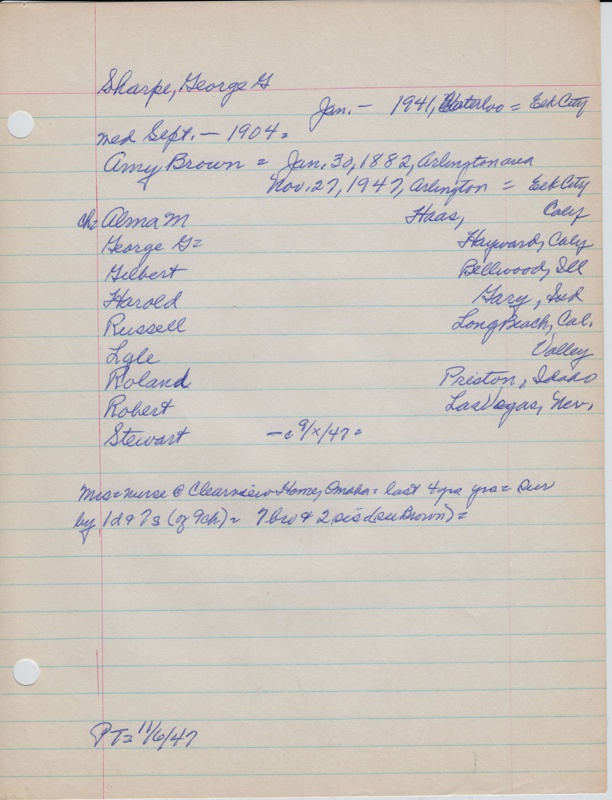 Sharpe, George G
Jan. - 1941, Waterloo = Elk City
med Sept. - 1904 =
Amy Brown = Jan. 30, 1882, Arlington area
Nov. 27, 1947, Arlington = Elk City
ch = Alma M Haas, Calif
George G = Hayward, Calif
Gilbert Bellwood, Ill
Harold Gary, Ind
Russell Long Beach, Cal.
Lyle Valley
Roland Preston, Idaho
Robert Las Vegas, Nev.
Stewart - c 9/x/47 =
Mrs = nurse @ Clearview Home, Omaha = last 4 yrs = sur
by 1d & 7s (of 9ch) = 7 bro & 2 sis (see Brown) =
PT = 11/6/47